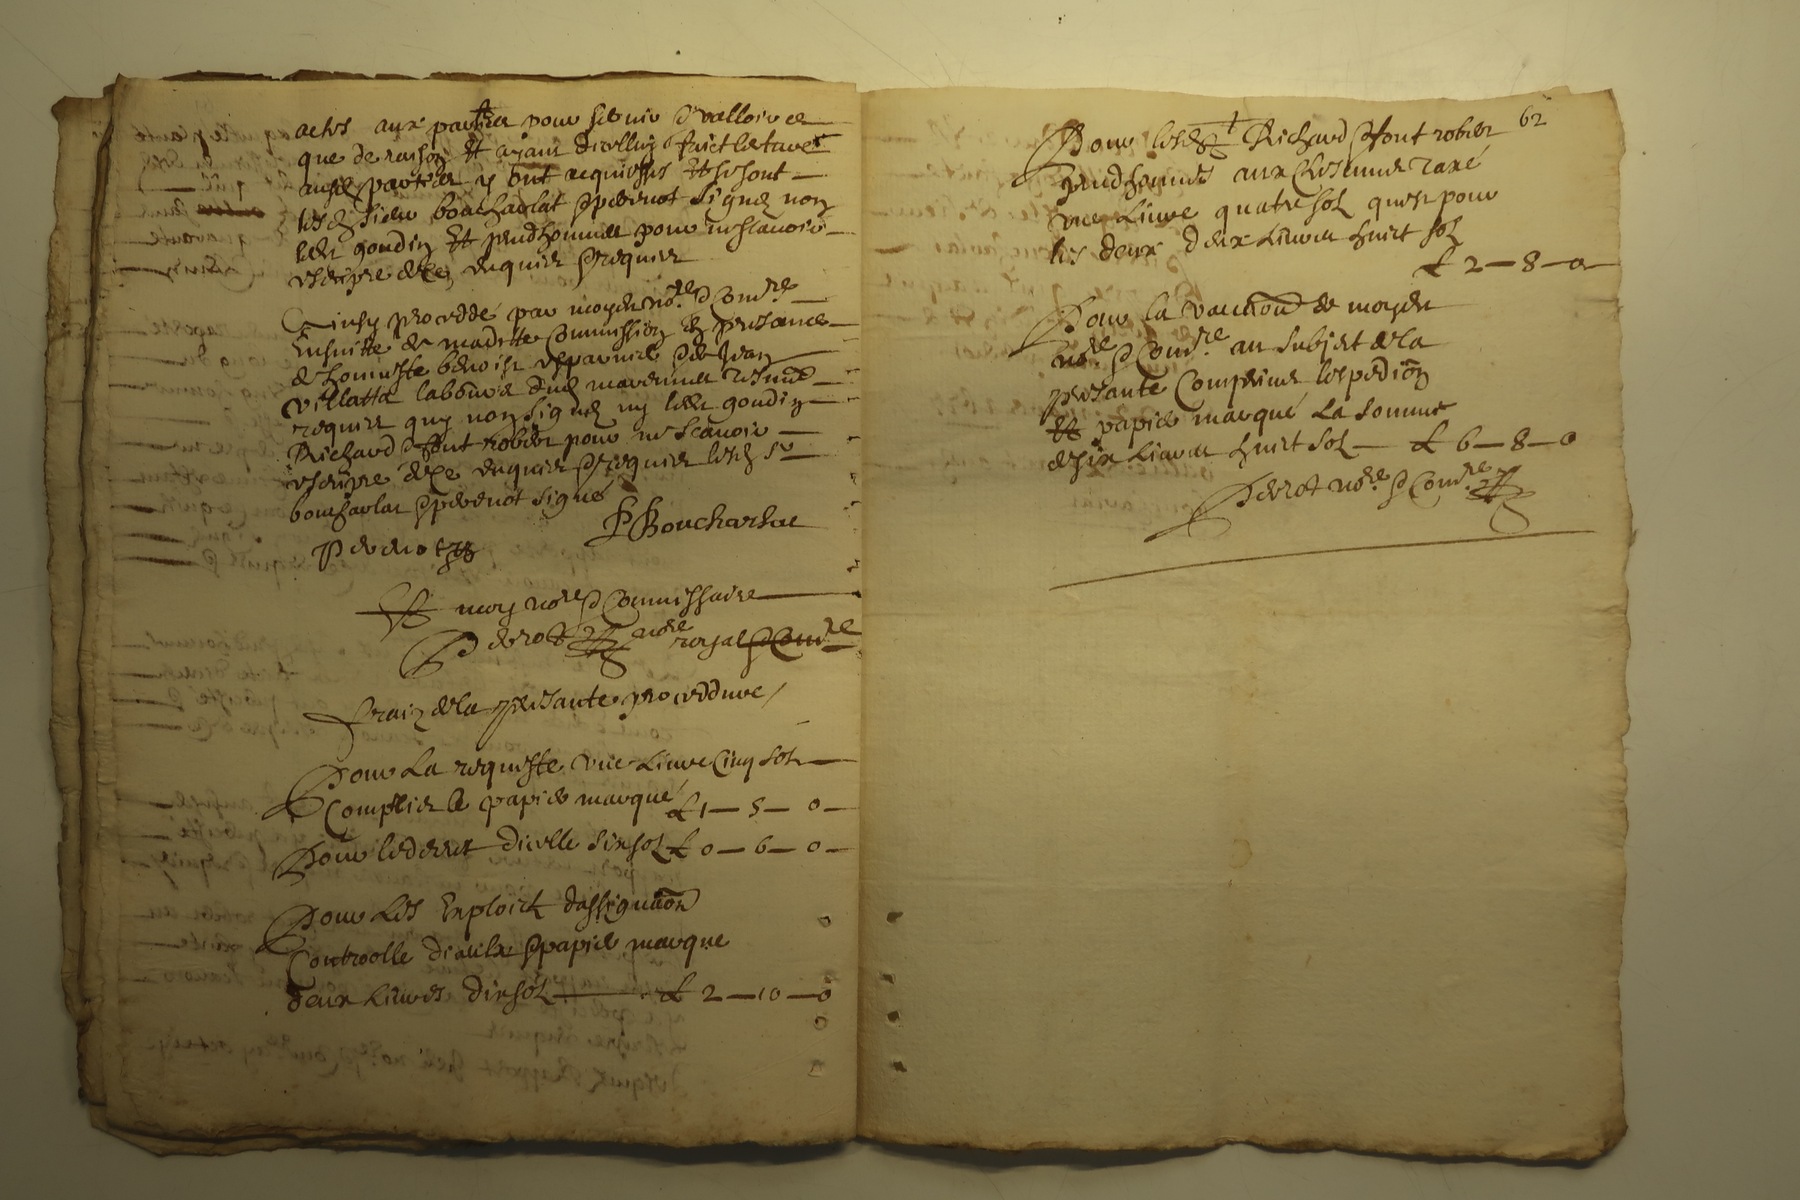 actes aux parties pour servir & valloir ce
que de raison Et ayant dicelluy faict lecture
ausd parties y ont acquiessés Et se sont
lesd sieur boucharlat & perrot signez non
led goudin Et prudhommes pour ne scavoir
escripre de ce enquier & requier
Ainsy procedde par moyd nore & Comre
Ensuitte de maditte Commission En presance
de honneste benoist & de Jean
villatta laboureur
requier quy non signez ny led goudin
Richard & font robert pour ne scavoir
escripre de ce enquier & requier lesd sr
boucharlat & perrot signé
PBoucharlat
Perrot
Et moy nore & Commissaire
Perrot nore royal & Comre
fraiz de la presante procedure
Pour La requeste une Livre Cinq sols
Compris le papier marqué £ 1 — 5 — 0
Pour le decret dicelle six solz £ 0 — 6 — 0
Pour Les Exploictz dassignaon
Controolle diceulx & papier marque
deux Livres dix solz £ 2 — 10 — 0
62
Pour lesd Richard & font robert
prudhommes aux taxé
une Livre quatre solz quest pour
les deux deux Livres huict solz
£ 2 — 8 — 0
Pour la vacaon de moyd
nore & Comre au subject de la
presante Compris lexpedion
Et papier marqué La somme
de six Livres huict solz £ 6 — 8 — 0
Perrot nore & Comre